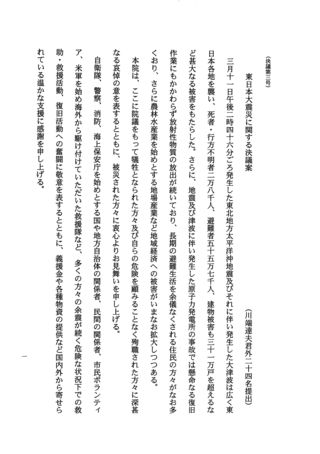 （決議第三号）
東日本大震災に関する決議案
（川端達夫君外二十四名提出）
三月十一日午後二時四十六分ごろ発生した東北地方太平洋沖地震及びそれに伴い発生した大津波は広く東
日本各地を襲い、死者・行方不明者二万八千人、避難者五十五万七千人、建物被害も三十一万戸を超えるな
ど甚大なる被害をもたらした。さらに、地震及び津波に伴い発生した原子力発電所の事故では懸命なる復旧
作業にもかかわらず放射性物質の放出が続いており、長期の避難生活を余儀なくされる住民の方々がなお多
くおり、さらに農林水産業を始めとする地場産業など地域経済への被害がいまなお拡大しつつある。
本院は、ここに院議をもって犠牲となられた方々及び自らの危険を顧みることなく殉職された方々に深甚
なる哀悼の意を表するとともに、被災された方々に衷心よりお見舞いを申し上げる。
自衛隊、警察、消防、海上保安庁を始めとする国や地方自治体の関係者、民間の関係者、市民ボランティ
ア、米軍を始め海外から駆け付けていただいた救援隊など、多くの方々の余震が続く危険な状況下での救
助・救援活動、復旧活動への奮闘に敬意を表するとともに、義援金や各種物資の提供など国内外から寄せら
れている温かな支援に感謝を申し上げる。
一